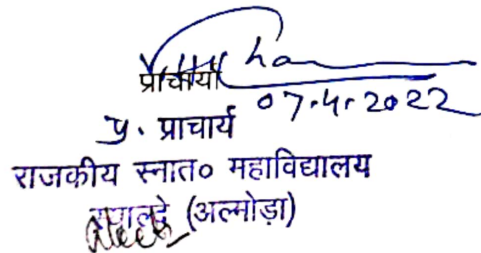 प्राचार्या
07.4.2022
प्र. प्राचार्य
राजकीय स्नात० महाविद्यालय
(अल्मोड़ा)